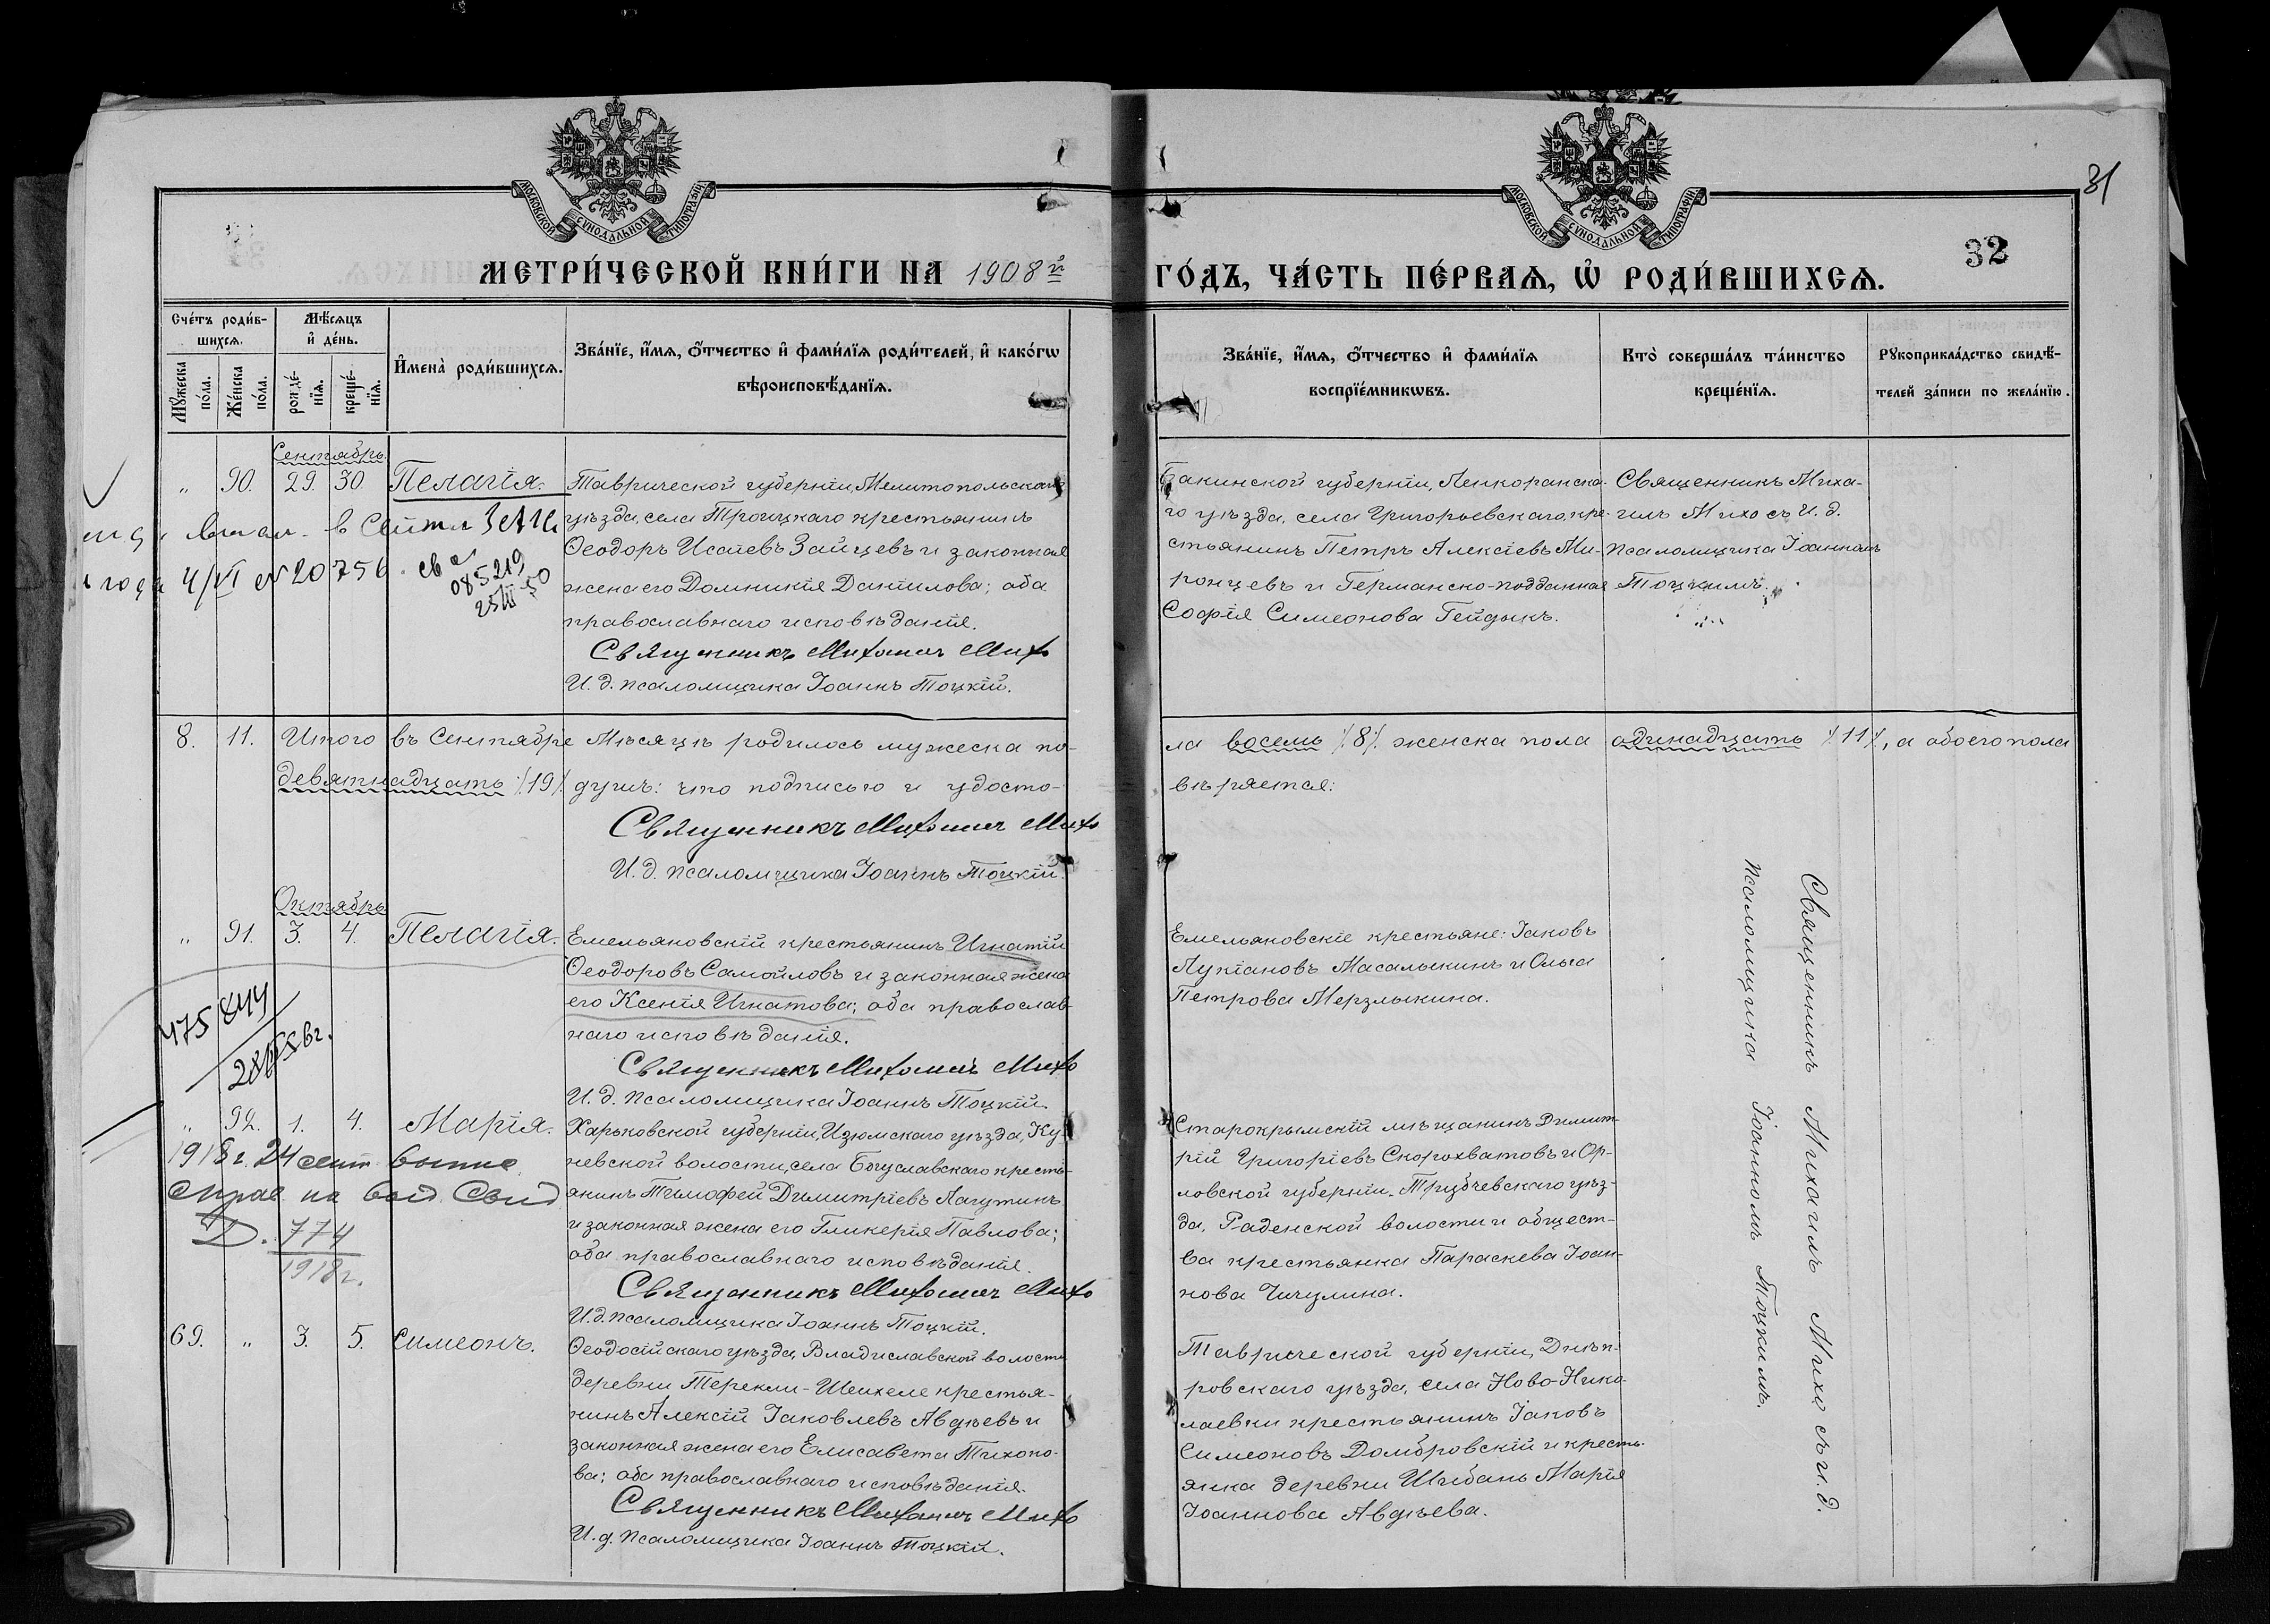 31
32
МОСКОВСКОЙ СѴНОДАЛЬНОЙ ТИПОГРАФІИ
МОСКОВСКОЙ СѴНОДАЛЬНОЙ ТИПОГРАФІИ
МЕТРИ́ЧЕСКОЙ КНИ́ГИ НА 1908й
ГО́ДЪ, ЧА́СТЬ ПЕ́РВАѦ, Ѡ҆ РОДИ́ВШИХСѦ.
Сче́тъ роди́в-
шихсѧ.
Мꙋ́жеска
по́ла.
Же́нска
по́ла.
Мѣ́сѧцъ
и҆ де́нь.
рожде́-
нїѧ.
креще́-
нїѧ.
И҆мена̀ роди́вшихсѧ.
Зва́нїе, и҆́мѧ, ѻ҆́тчество и҆ фами́лїѧ роди́телей, и҆ како́гѡ
вѣроисповѣ́данїѧ.
Зва́нїе, и҆́мѧ, ѻ҆́тчество и҆ фами́лїѧ
воспрїе́мникѡвъ.
Кто̀ соверша́лъ та́инство
креще́нїѧ.
Рꙋкоприкла́дство свидѣ́-
телей за́писи по жела́нїю.
Сентябрь
„ 90. 29. 30. Пелагія.
Таврической губерніи, Мелитопольскаго
уѣзда, села Троицкаго крестьянинъ
Ѳеодоръ Исаіевъ Зайцевъ и законная
жена его Домникія Даніилова; оба
православнаго исповѣданія.
Священникъ Михаилъ Михо
И. д. псаломщика Іоаннъ Тоцкій.
4/VI № 20756
085219
25/III 50
Бакинской губерніи, Ленкоранска-
го уѣзда, села Григорьевскаго, кре-
стьянинъ Петръ Алексіевъ Ми-
ронцевъ и Германско-подданная
Софія Симеонова Гейдыкъ.
Священникъ Миха-
илъ Михо съ И. д.
псаломщика Іоанномъ
Тоцкимъ.
8. 11. Итого въ Сентябре Мѣсяцѣ родилось мужеска по-
ла восемь /8/. женска пола одинадцать /11/, а обоего пола
девятнадцать /19/ душъ: что подписью и удосто-
вѣряется:
Священникъ Михаилъ Михо
И. д. псаломщика Іоаннъ Тоцкій.
Октябрь
„ 91. 3. 4. Пелагія.
Емельяновскій крестьянинъ Игнатій
Ѳеодоровъ Самойловъ и законная жена
его Ксенія Игнатова; оба православ-
наго исповѣданія.
Священникъ Михаилъ Михо
И. д. псаломщика Іоаннъ Тоцкій.
475844
Емельяновскіе крестьяне: Іаковъ
Лукіановъ Масалыкинъ и Ольга
Петрова Мерзлыкина.
„ 92. 1. 4. Марія.
Харьковской губерніи, Изюмскаго уѣзда, Ку-
невской волости, села Богуславскаго кресть-
янинъ Тимофей Димитріевъ Лагутинъ
и законная жена его Гликерія Павлова;
оба православнаго исповѣданія.
Священникъ Михаилъ Михо
И. д. псаломщика Іоаннъ Тоцкій.
1918 г. 24 сент.
774
1918 г.
Старокрымскій мѣщанинъ Димит-
рій Григоріевъ Скорохватовъ и Ор-
ловской губерніи, Трубчевскаго уѣз-
да, Раденской волости и общест-
ва крестьянка Параскева Іоан-
нова Чичулина.
69. „ 3. 5. Симеонъ.
Ѳеодосійскаго уѣзда, Владиславской волости
деревни Терекли-Шеихеле крестья-
нинъ Алексій Іаковлевъ Авдѣевъ и
законная жена его Елисавета Тихоно-
ва; оба православнаго исповѣданія.
Священникъ Михаилъ Михо
И. д. псаломщика Іоаннъ Тоцкій.
Таврической губерніи, Днѣп-
ровскаго уѣзда, села Ново-Нико-
лаевки крестьянинъ Іаковъ
Симеоновъ Домбровскій и кресть-
янка деревни Шибань Марія
Іоаннова Авдѣева.
Священникъ Михаилъ Михо съ и. д.
псаломщика Іоанномъ Тоцкимъ.